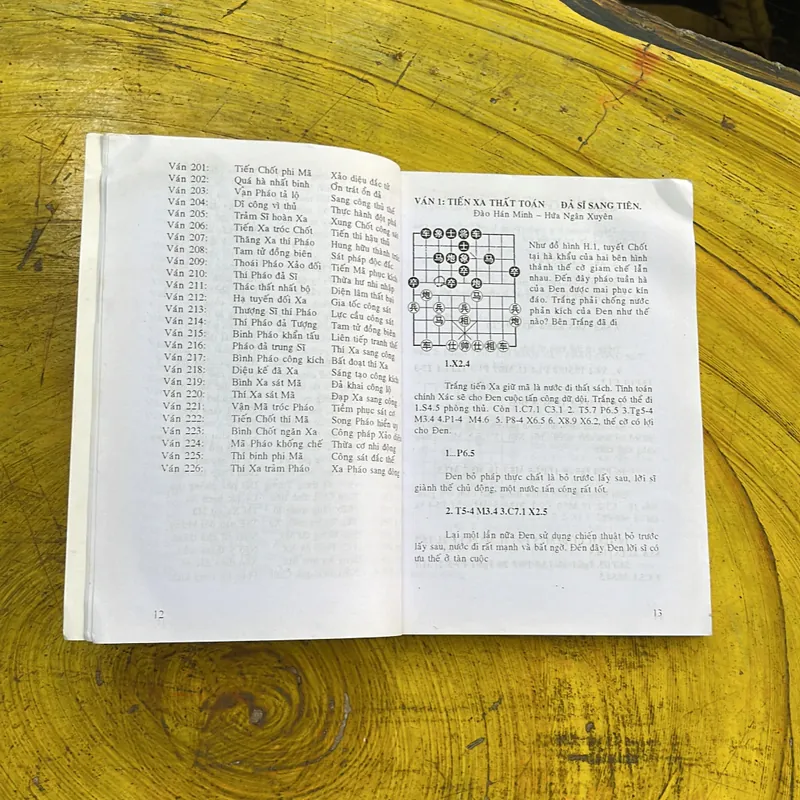 Ván 201: Tiến Chốt phi Mã Xảo diệu đắc tử
Ván 202: Quá hà nhất binh Ổn trát ổn đả
Ván 203: Vạn Pháo tả lộ Sang công thủ thế
Ván 204: Dĩ công vi thủ Thực hành đột phá
Ván 205: Trảm Sĩ hoàn Xa Xung Chốt công sát
Ván 206: Tiến Xa tróc Chốt Tiến thi hậu thủ
Ván 207: Thăng Xa thí Pháo Hung hữu thành trúc
Ván 208: Tam tử đồng biên Sát pháp độc đắc
Ván 209: Thoái Pháo Xảo đối Tiến Mã phục kích
Ván 210: Thí Pháo đả Sĩ Thừa hư nhi nhập
Ván 211: Thác thất nhất bộ Diện lâm thất bại
Ván 212: Hạ tuyến đối Xa Gia tốc công sát
Ván 213: Thượng Sĩ thí Pháo Lực cầu công sát
Ván 214: Thí Pháo đả Tượng Tam tử đồng biên
Ván 215: Bình Pháo khẩn tấu Liên tiếp tranh thế
Ván 216: Pháo đả trung Sĩ Thí Xa sang công
Ván 217: Bình Pháo công kích Bất đoạt thí Xa
Ván 218: Diệu kế đã Xa Sáng tạo công kích
Ván 219: Bình Xa sát Mã Đả khai công lộ
Ván 220: Thí Xa sát Mã Đạp Xa sang công
Ván 221: Vận Mã tróc Pháo Tiềm phục sát cơ
Ván 222: Tiến Chốt thí Mã Song Pháo hiển uy
Ván 223: Bình Chốt ngăn Xa Công pháp Xảo diệu
Ván 224: Mã Pháo khống chế Thừa cơ nhi động
Ván 225: Thí binh phi Mã Công sát đắc thế
Ván 226: Thí Xa trảm Pháo Xa Pháo sang đông
12
VÁN 1: TIẾN XA THẤT TOÁN ĐẢ SĨ SANG TIÊN.
Đào Hán Minh – Hứa Ngân Xuyên
Như đồ hình H.1, tuyết Chốt
tại hà khẩu của hai bên hình
thành thế cờ giam chế lẫn
nhau. Đến đây pháo tuần hà
của Đen được mai phục kín
đáo. Trắng phải chống nước
phản kích của Đen như thế
nào? Bên Trắng đã đi
1.X2.4
Trắng tiến Xa giữ mã là nước đi thất sách. Tính toán
chính Xác sẽ cho Đen cuộc tấn công dữ dội. Trắng có thể đi
1.S4.5 phòng thủ. Còn 1.C7.1 C3.1 2. T5.7 P6.5 3.Tg5-4
M3.4 4.P1-4 M4.6 5. P8-4 X6.5 6. X8.9 X6.2, thế cờ có lợi
cho Đen.
1...P6.5
Đen bỏ pháp thực chất là bỏ trước lấy sau, lời sĩ
giành thế chủ động, một nước tấn công rất tốt.
2. T5-4 M3.4 3.C7.1 X2.5
Lại một lần nữa Đen sử dụng chiến thuật bỏ trước
lấy sau, nước đi rất mạnh và bất ngờ. Đến đây Đen lời sĩ có
ưu thế ở tàn cuộc
13